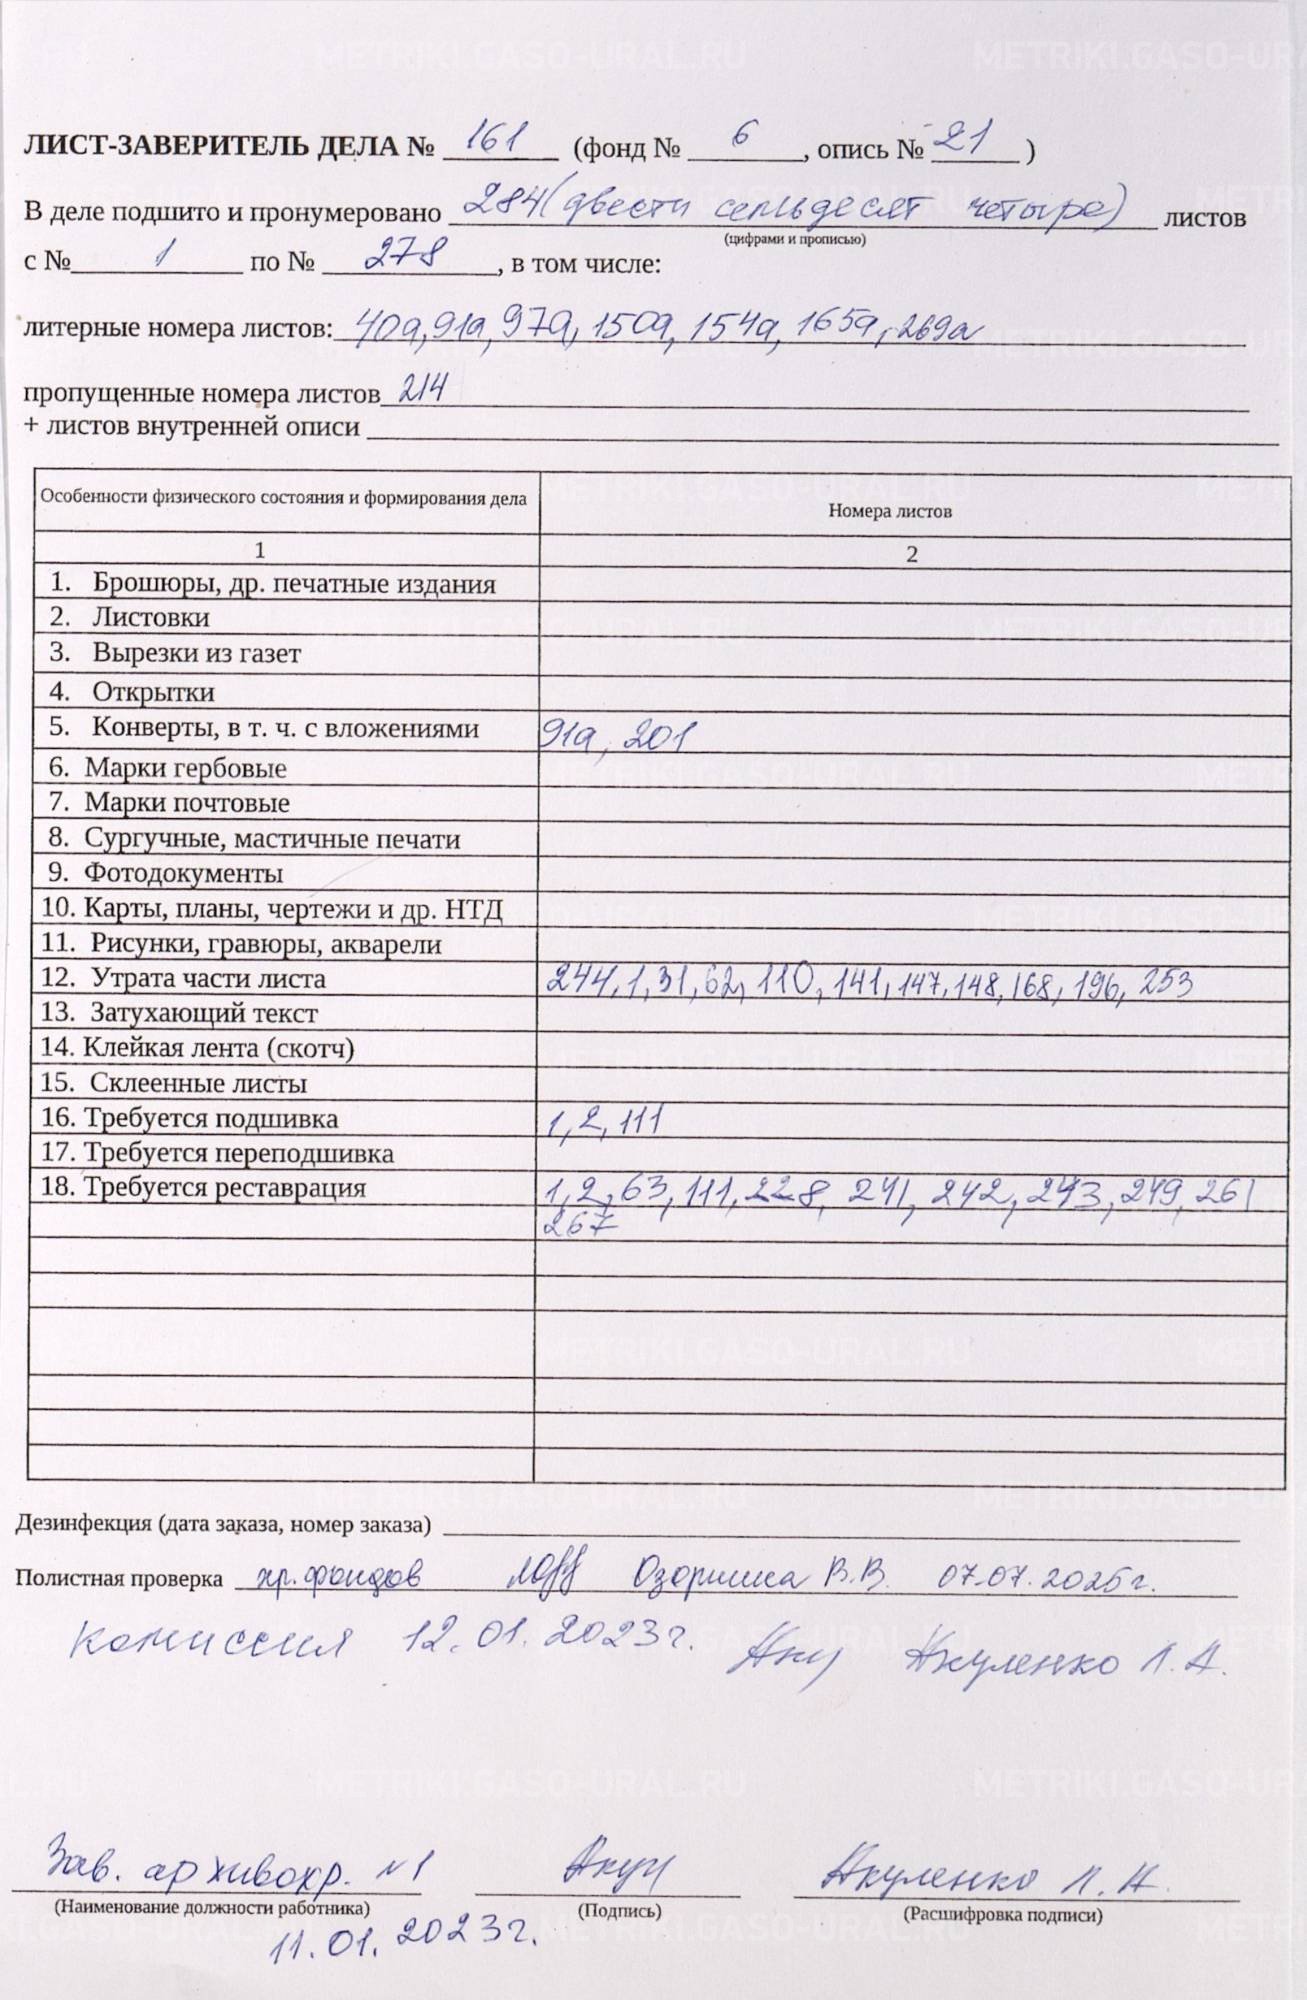 ЛИСТ-ЗАВЕРИТЕЛЬ ДЕЛА № 161 (фонд № 6, опись № 21)
В деле подшито и пронумеровано 284 (двести семьдесят четыре) листов
(цифрами и прописью)
с № 1 по № 278, в том числе:
литерные номера листов: 40а, 91а, 97а, 150а, 154а, 165а, 269а
пропущенные номера листов 214
+ листов внутренней описи
Особенности физического состояния и формирования дела Номера листов
1 2
1. Брошюры, др. печатные издания
2. Листовки
3. Вырезки из газет
4. Открытки
5. Конверты, в т. ч. с вложениями 91а, 201
6. Марки гербовые
7. Марки почтовые
8. Сургучные, мастичные печати
9. Фотодокументы
10. Карты, планы, чертежи и др. НТД
11. Рисунки, гравюры, акварели
12. Утрата части листа 244, 1, 31, 62, 110, 141, 147, 148, 168, 196, 253
13. Затухающий текст
14. Клейкая лента (скотч)
15. Склеенные листы
16. Требуется подшивка 1, 2, 111
17. Требуется переподшивка
18. Требуется реставрация 1, 2, 63, 111, 228, 241, 242, 243, 249, 261
267
Дезинфекция (дата заказа, номер заказа)
Полистная проверка хр. фондов В.В. 07.07.2025г.
комиссия 12.01.2023г. Якуленко Л.А.
Зав. архивохр. №1 Якуленко Л.А.
(Наименование должности работника) (Подпись) (Расшифровка подписи)
11.01.2023г.
METRIKI.GASO-URAL.RU